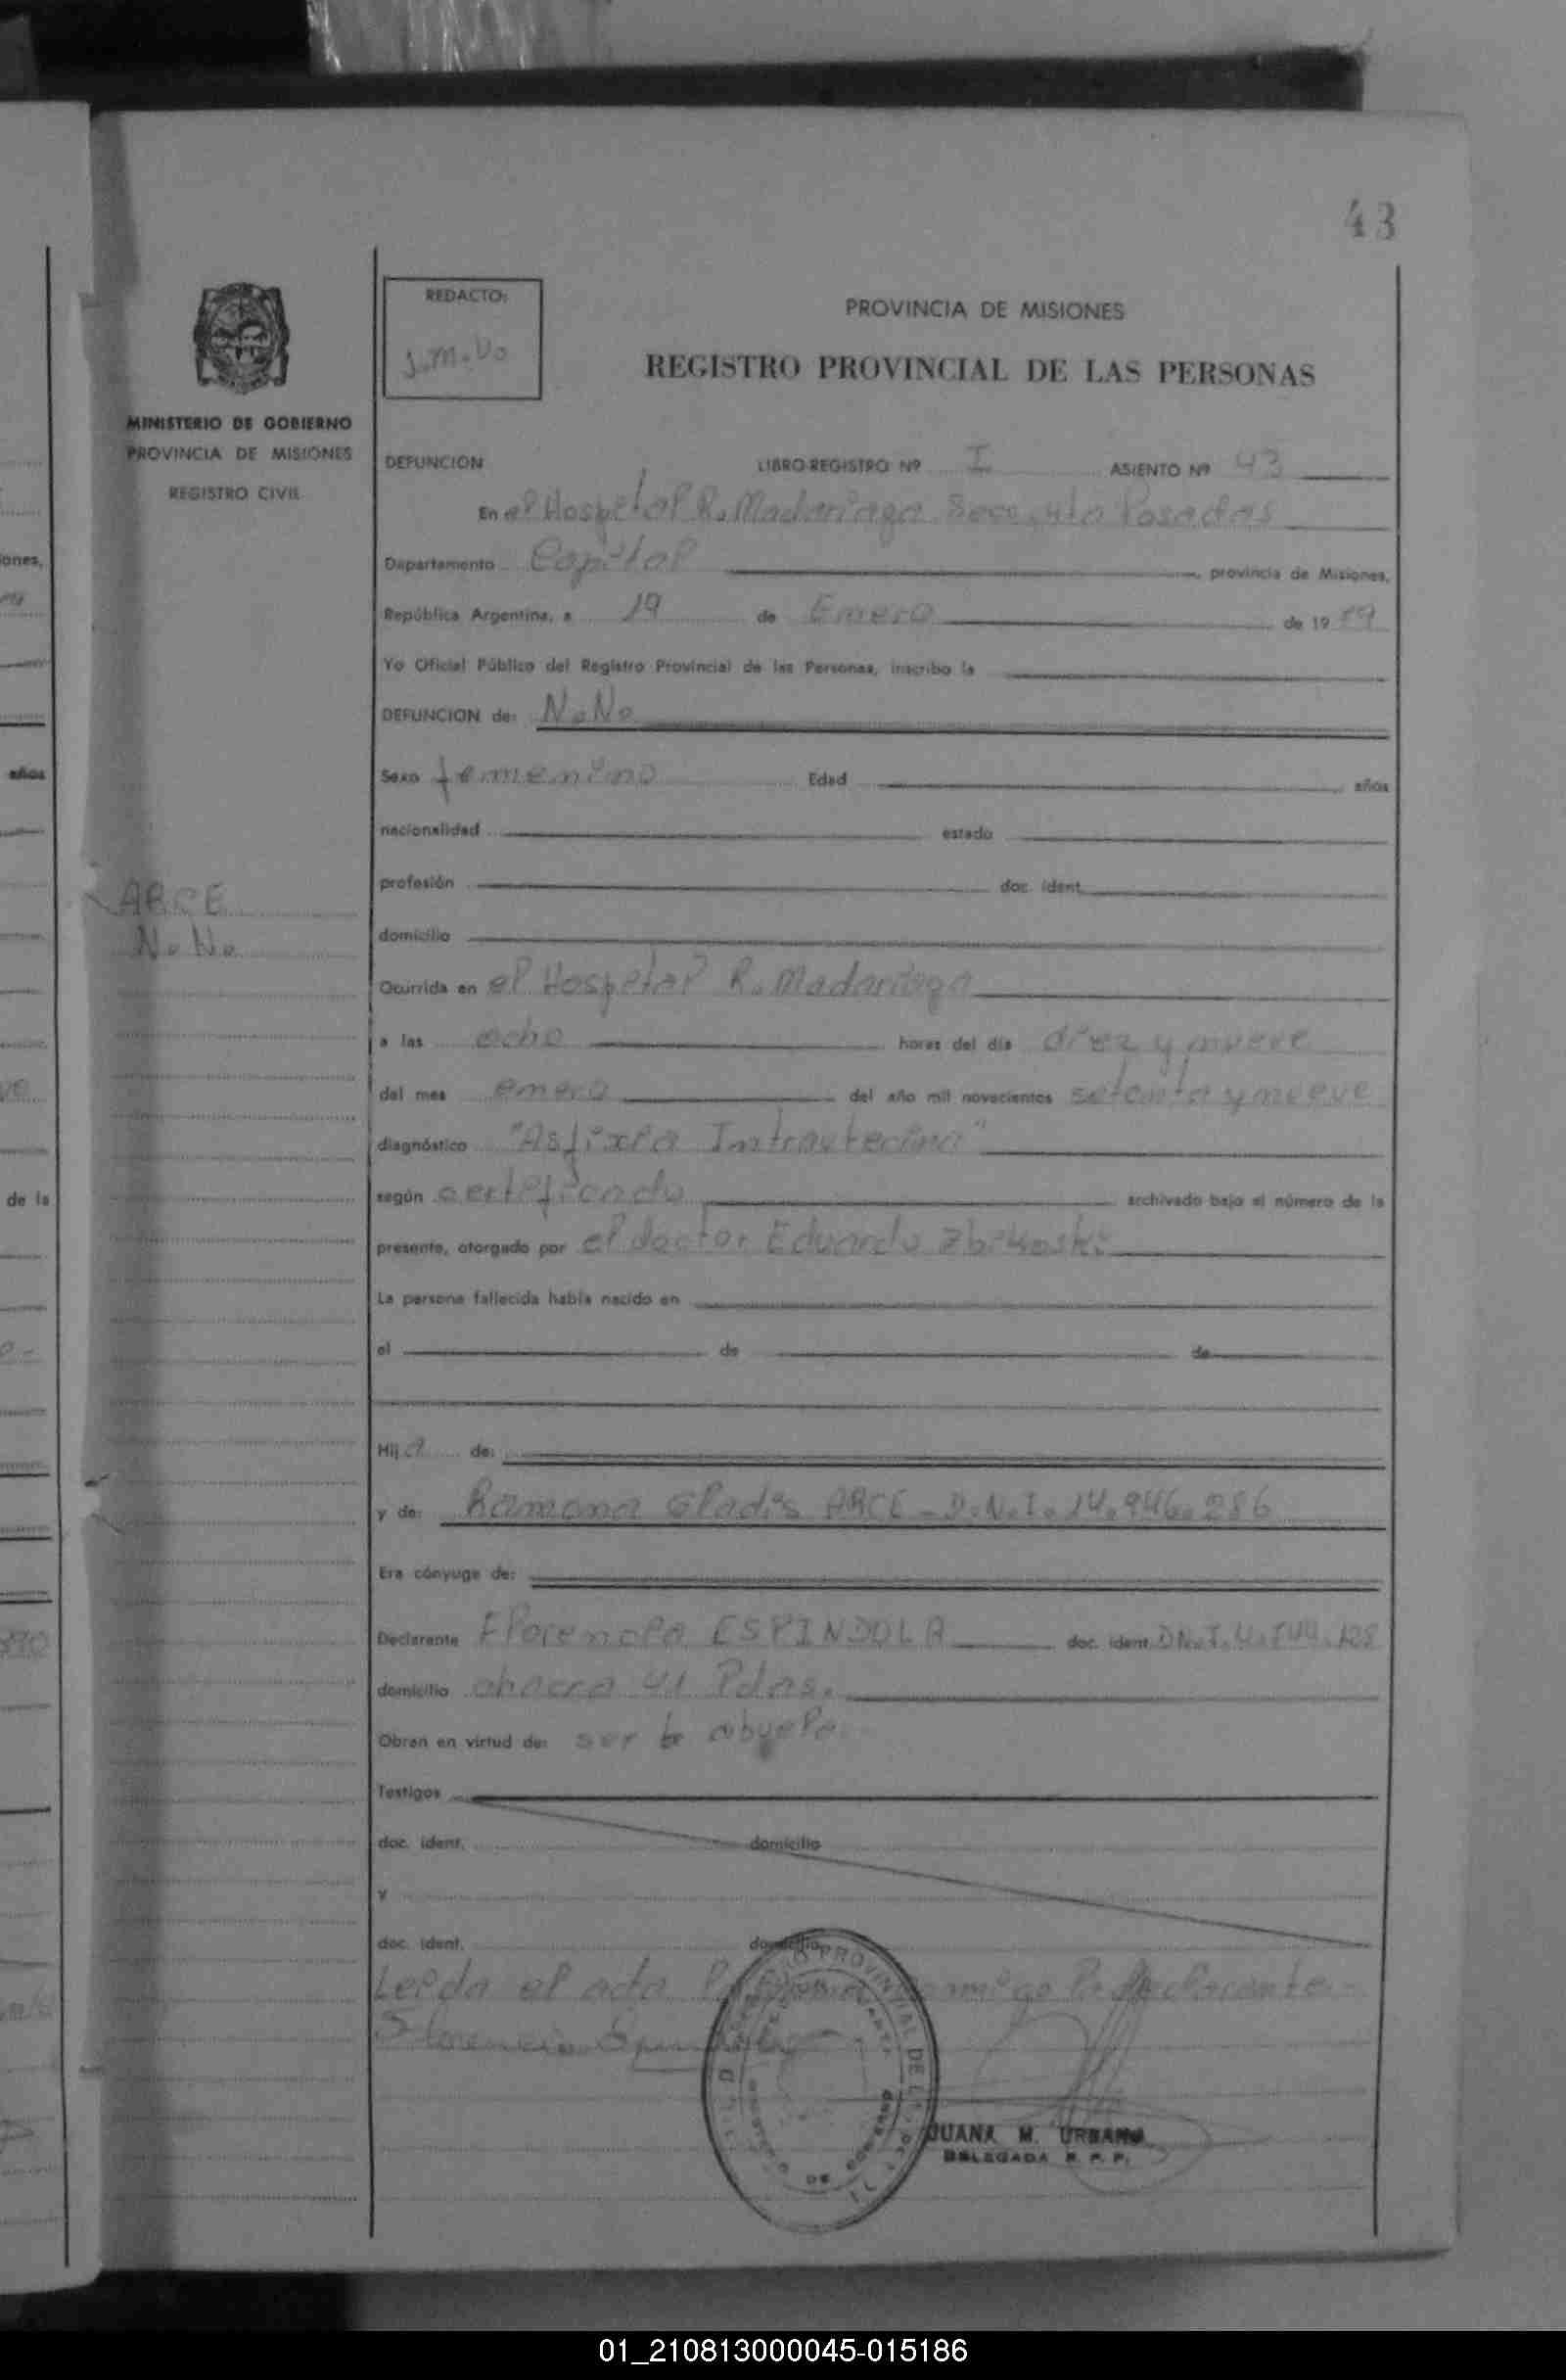 43
REDACTO:
J.M.Uo
PROVINCIA DE MISIONES
REGISTRO PROVINCIAL DE LAS PERSONAS
MINISTERIO DE GOBIERNO
PROVINCIA DE MISIONES
REGISTRO CIVIL
DEFUNCION LIBRO-REGISTRO Nº I ASIENTO Nº 43
En el Hospital R. Madariaga Secc. 4ta Posadas
Departamento Capital, provincia de Misiones,
República Argentina, a 19 de Enero de 19 79
Yo Oficial Público del Registro Provincial de las Personas, inscribo la
DEFUNCION de: N.N.
Sexo femenino Edad años
nacionalidad estado
profesión doc. ident.
ARCE
N.N.
domicilio
Ocurrida en el Hospital R. Madariaga
a las ocho horas del día diez y nueve
del mes enero del año mil novecientos setenta y nueve
diagnóstico "Asfixia Intrauterina"
según certificado archivado bajo el número de la
presente, otorgado por el doctor Eduardo
La persona fallecida había nacido en
el de de
Hij a de:
y de: Ramona Gladis ARCE - D.N.I. 14.946.286
Era cónyuge de:
Declarante Florencia ESPINDOLA doc. ident. DN.I.
domicilio chacra 41 Pdas.
Obran en virtud de: ser la abuela
Testigos
doc. ident. domicilio
y
doc. ident. domicilio
Leida el acta la firma conmigo la declarante.-
Florencia
JUANA M. URBANO
DELEGADA R. P. P.
años
de la
01_210813000045-015186